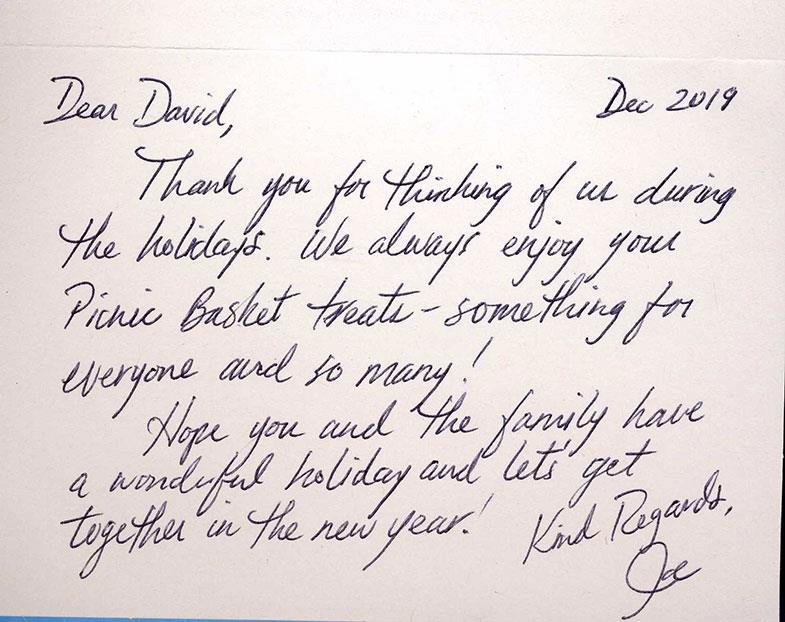 Dear David, Dec 2019
Thank you for thinking of us during
the holidays. We always enjoy your
Picnic Basket treats - something for
everyone and so many!
Hope you and the family have
a wonderful holiday and let's get
together in the new year!
Kind Regards,
Joe